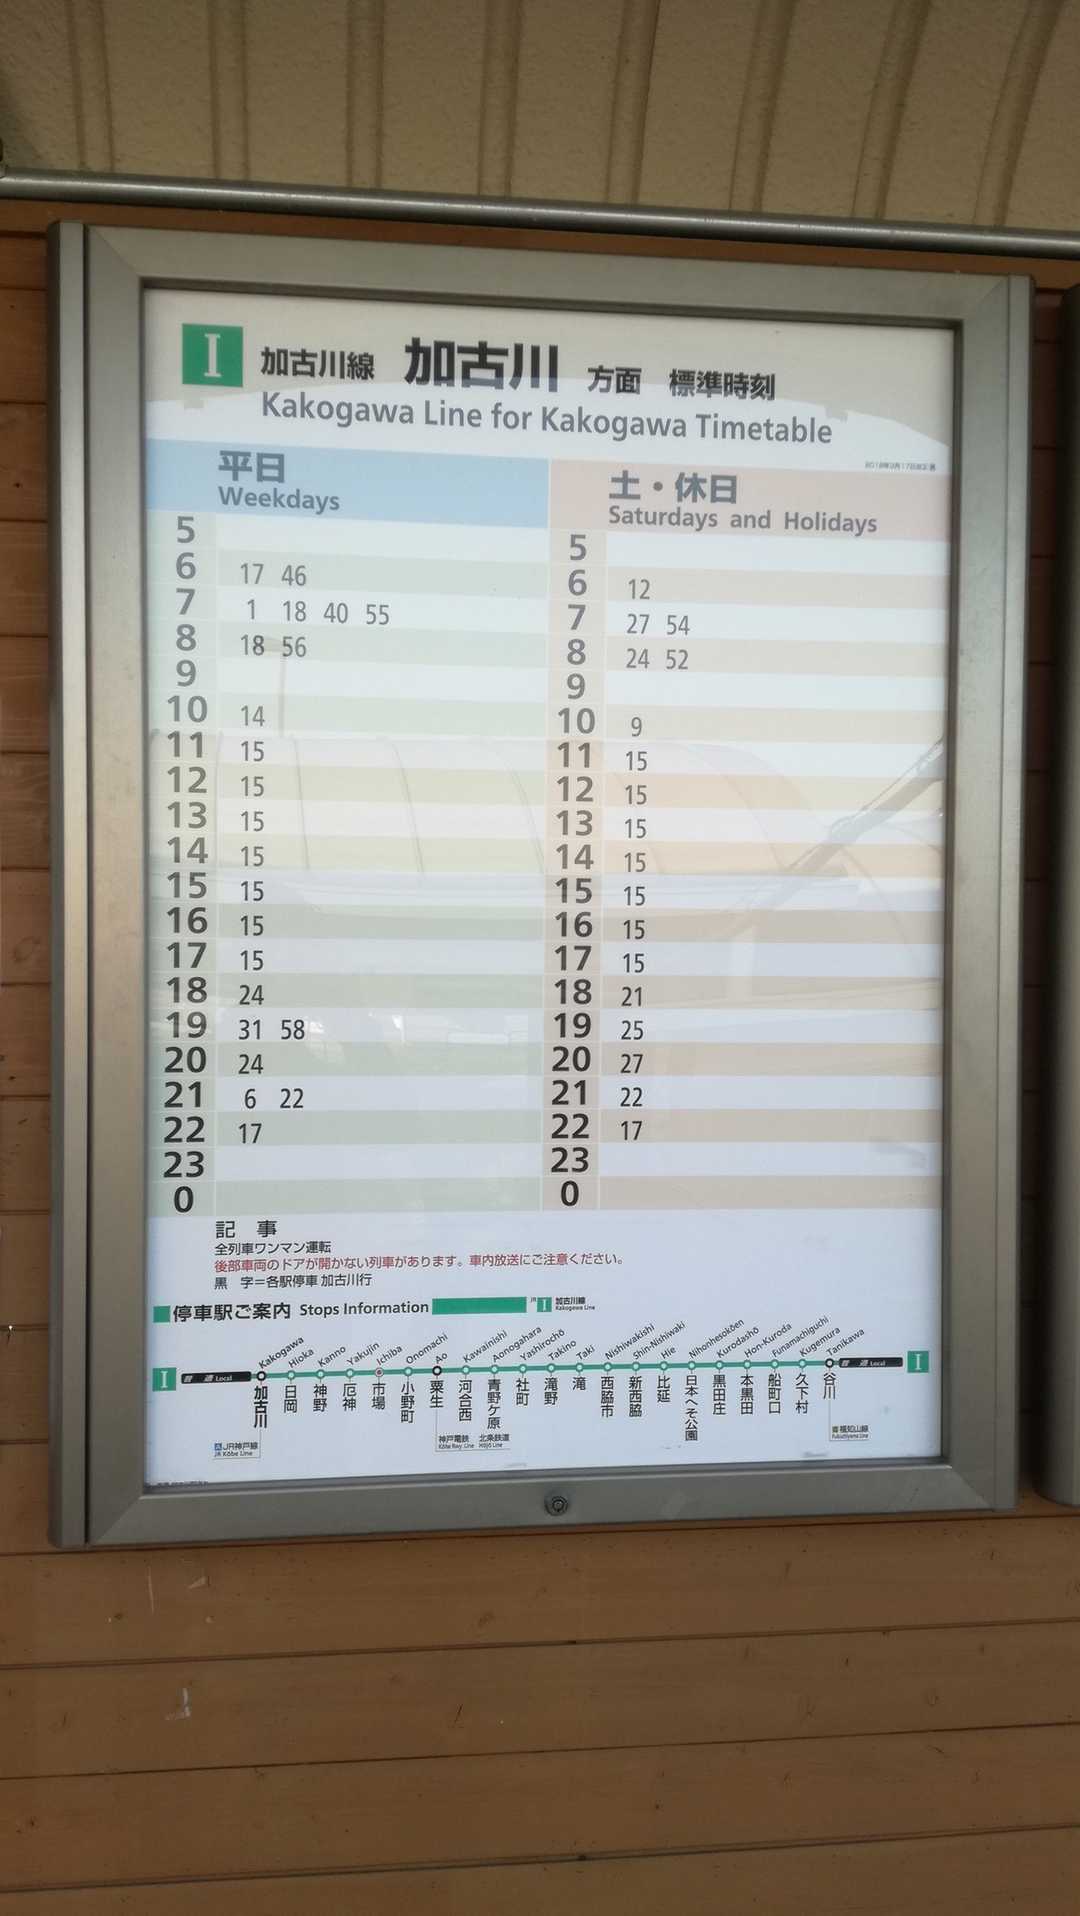 I 加古川線 加古川 方面 標準時刻
Kakogawa Line for Kakogawa Timetable
平日
Weekdays
土・休日
Saturdays and Holidays
5
6 17 46
7 1 18 40 55
8 18 56
9
10 14
11 15
12 15
13 15
14 15
15 15
16 15
17 15
18 24
19 31 58
20 24
21 6 22
22 17
23
0
5
6 12
7 27 54
8 24 52
9
10 9
11 15
12 15
13 15
14 15
15 15
16 15
17 15
18 21
19 25
20 27
21 22
22 17
23
0
記 事
全列車ワンマン運転
後部車両のドアが開かない列車があります。車内放送にご注意ください。
黒 字=各駅停車 加古川行
停車駅ご案内 Stops Information JR I 加古川線
Kakogawa Line
Kakogawa Hioka Kanno Yakujin Ichiba Onomachi Ao Kawainishi Aonogahara Yashirochō Takino Taki Nishiwakishi Shin-Nishiwaki Hie Nihonhesokōen Kurodashō Hon-Kuroda Funamachiguchi Kugemura Tanikawa
I 普通 Local 普通 Local I
加古川 日岡 神野 厄神 市場 小野町 粟生 河合西 青野ケ原 社町 滝野 滝 西脇市 新西脇 比延 日本へそ公園 黒田庄 本黒田 船町口 久下村 谷川
A JR神戸線
JR Kōbe Line
神戸電鉄 北条鉄道
Kōbe Rwy. Line Hōjō Line
福知山線
Fukuchiyama Line